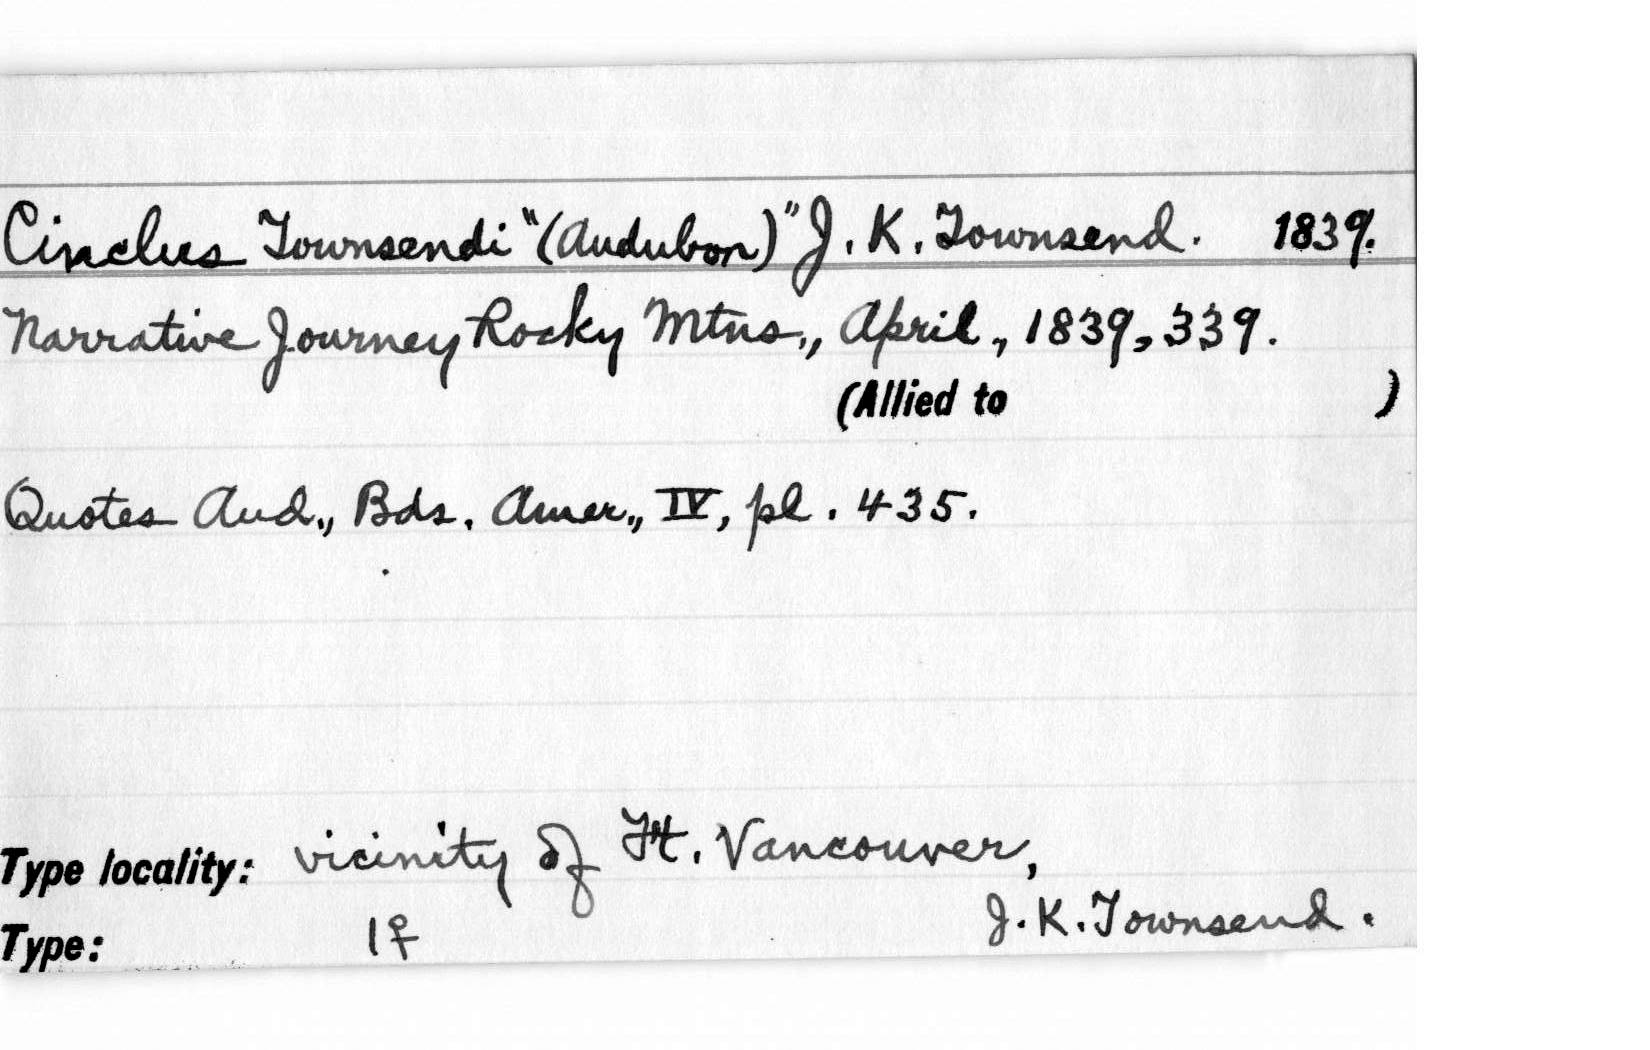 Cinclus Townsendi "(Audubon)" J. K. Townsend. 1839.
Narrative Journey Rocky Mtns., April, 1839, 339.
(Allied to )
Quotes Aud., Bds. Amer., IV, pl. 435.
Type locality: vicinity of Ft. Vancouver,
Type: 1♀ J. K. Townsend.